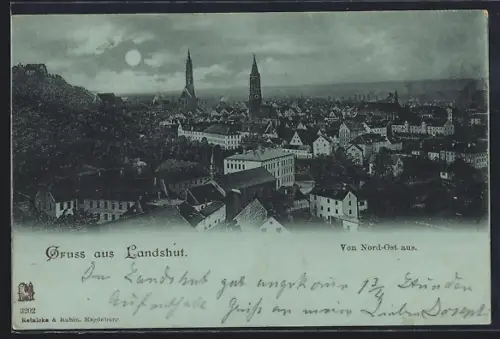 Gruss aus Landshut.
Von Nord-Ost aus.
In Landshut gut angekommen 1¾ Stunden
Aufenthalt Gruß an meine Lieben Josef
3202
Reinicke & Rubin, Magdeburg.